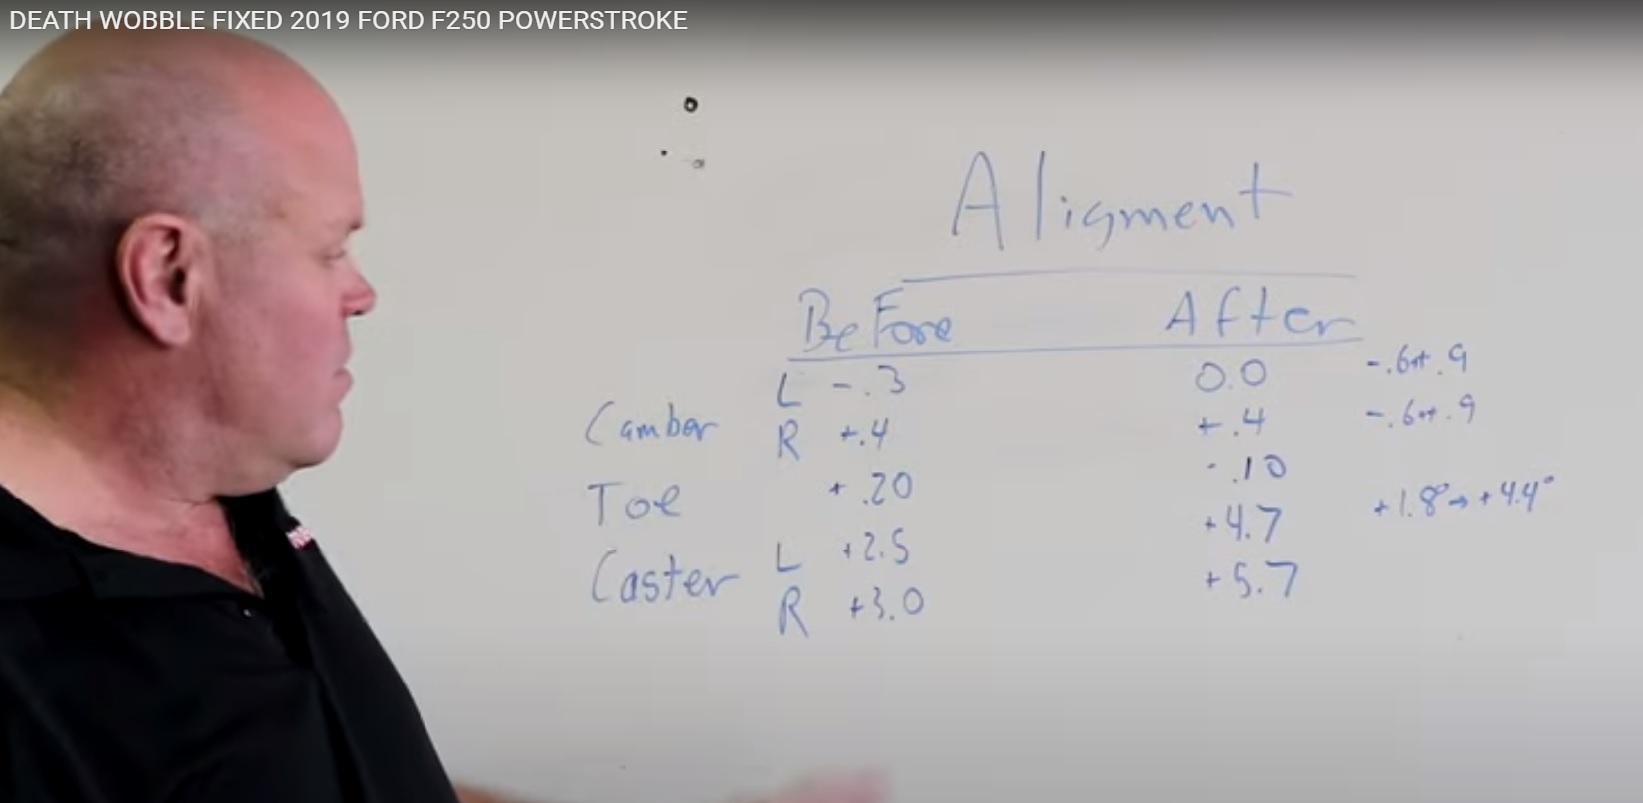 DEATH WOBBLE FIXED 2019 FORD F250 POWERSTROKE
Aligment
Before After
L -.3 0.0 -.6 .9
Camber R +.4 +.4 -.6 .9
Toe +.20 -.10
Caster L +2.5 +4.7 +1.8° → +4.4°
R +3.0 +5.7